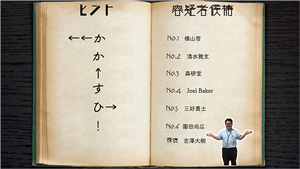 ヒント
←←かか↑すひ→!
容疑者候補
No.1 横山哲
No.2 清水雅文
No.3 森研堂
No.4 Joel Baker
No.5 三好貴士
No.6 園田尚広
探偵 吉澤大樹